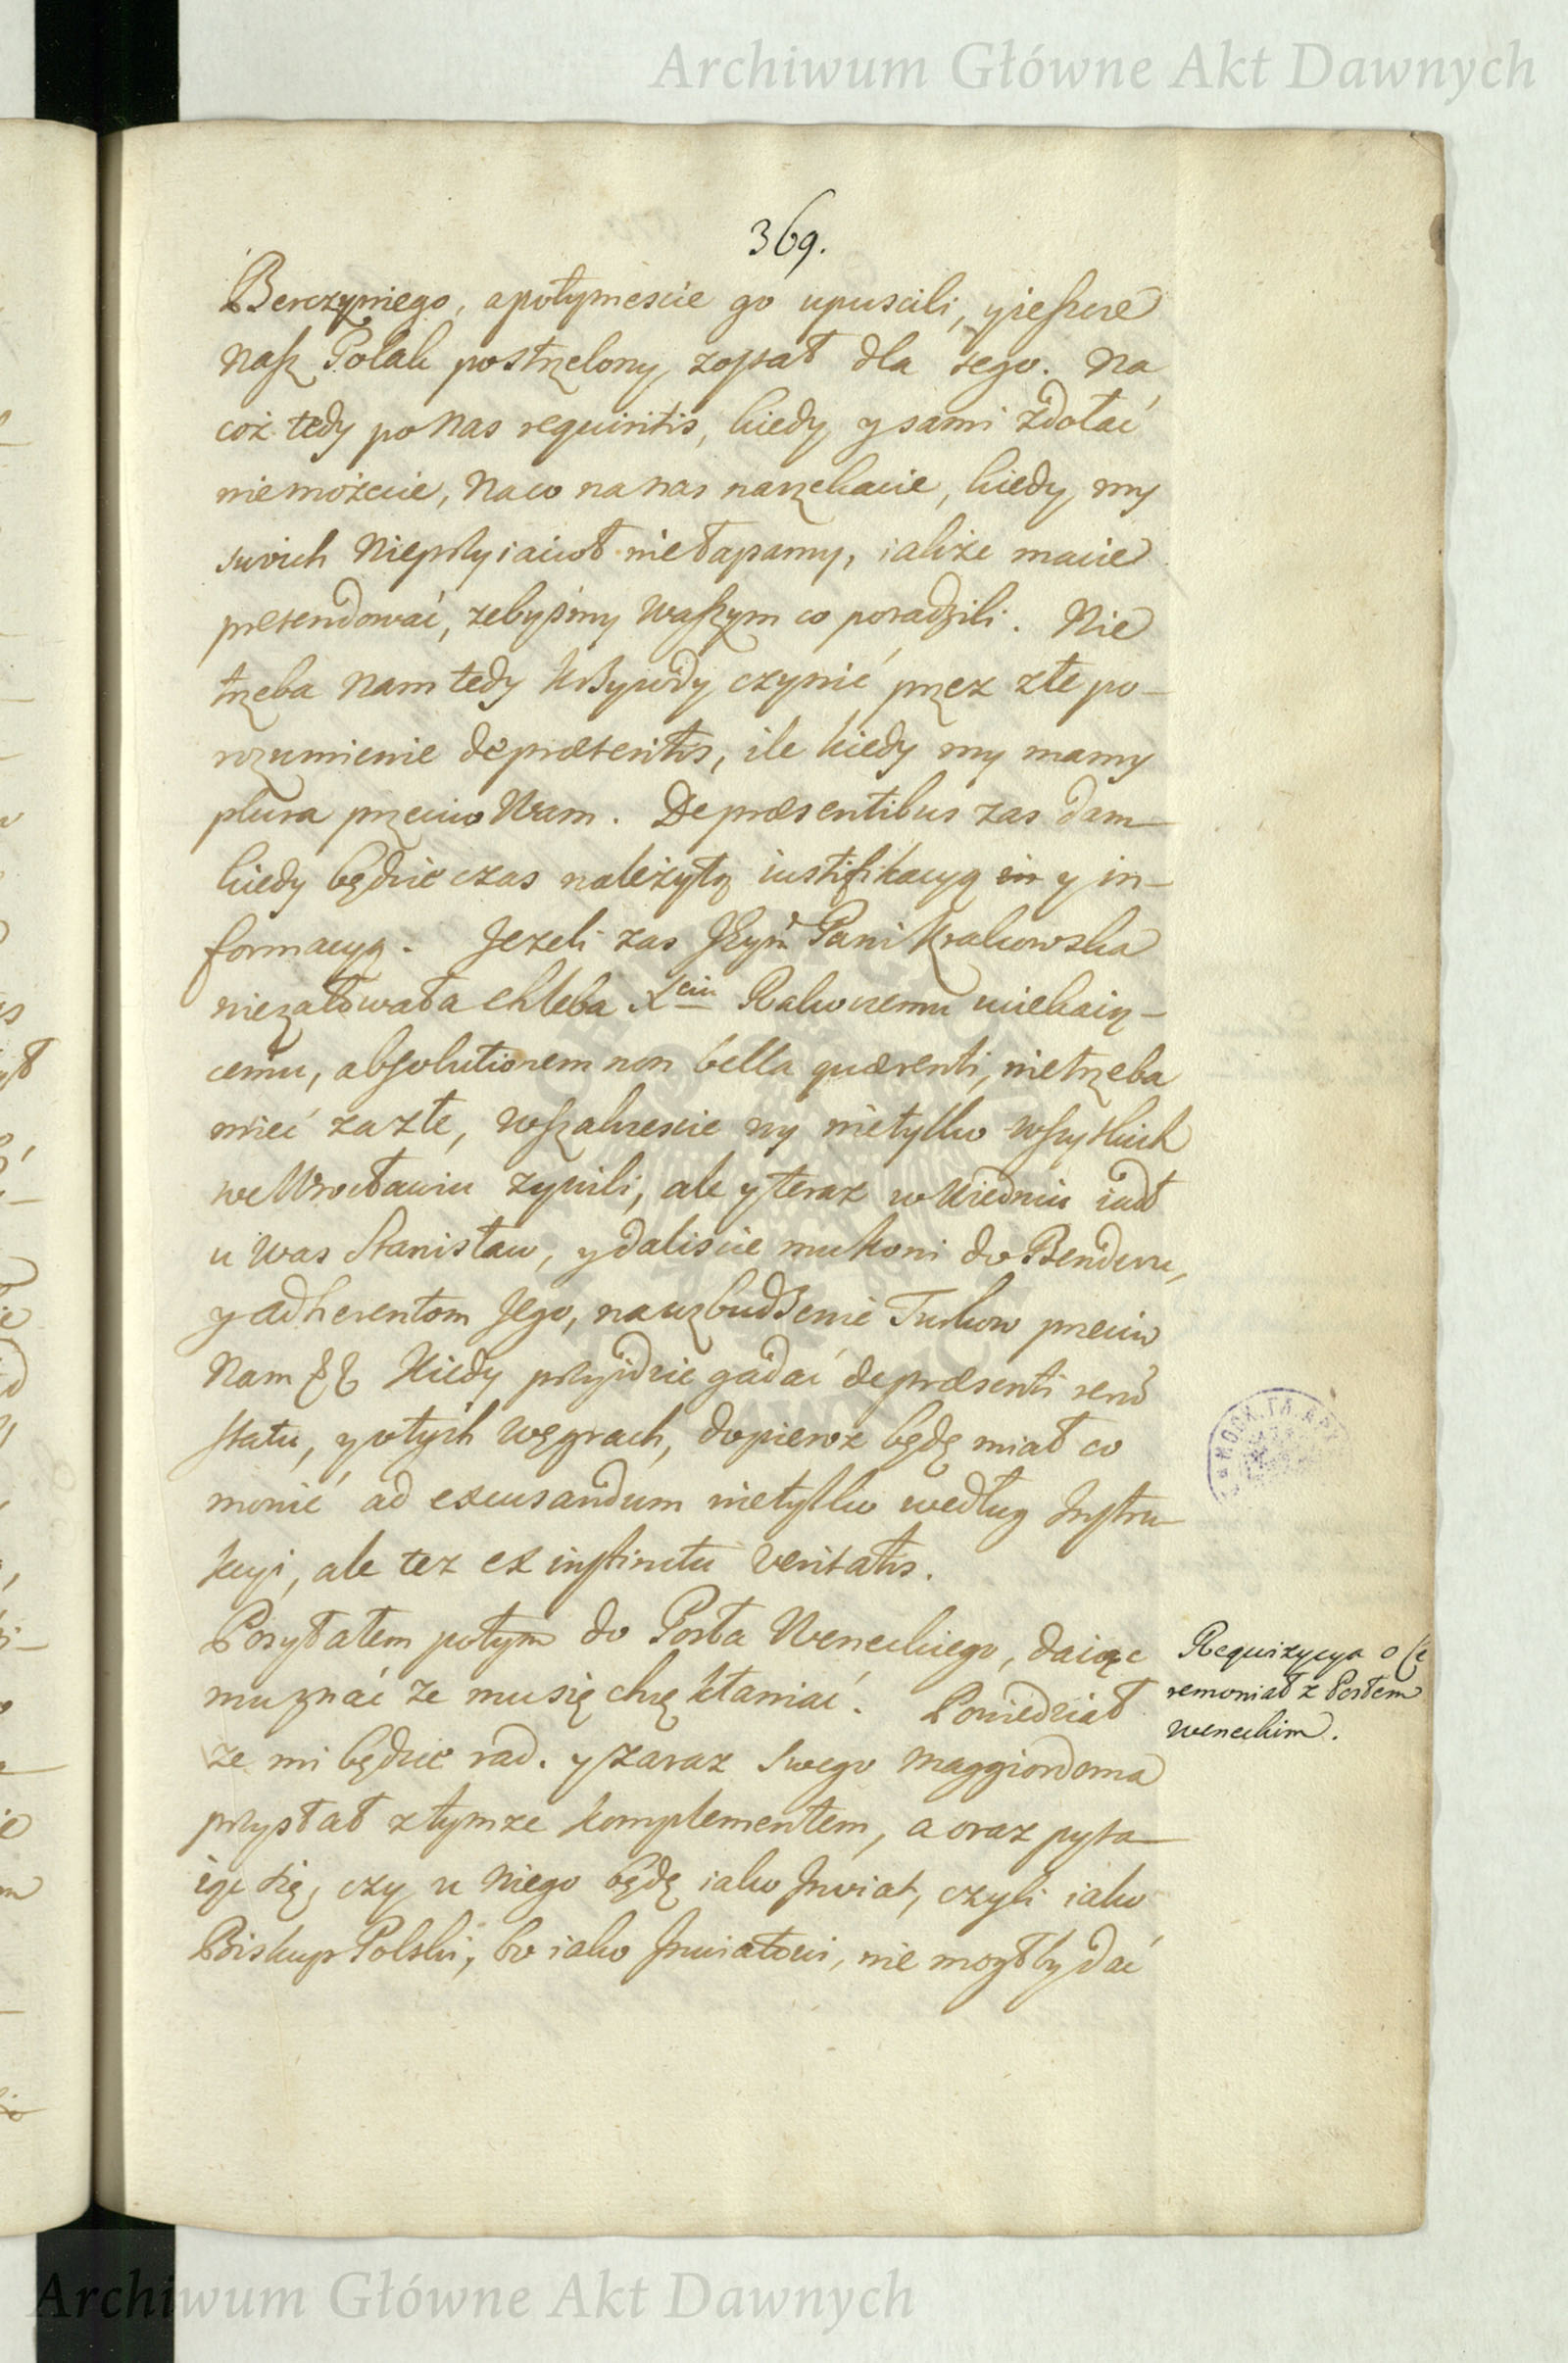 Archiwum Główne Akt Dawnych
369.
Berczyniego, apotymescie go upuscili, yieszcze
nasz Polak postrzelony został dla tego. Na
coż tedy po nas requiritis, kiedy y sami zdołać
niemożecie, Naco nanas narzekacie, kiedy my
swoich Nieprzyiacioł niełapamy, iakże macie
pretendować, żebyśmy waszym co poradzili. Nie
trzeba Nam tedy krzywdy czynić przez złe po-
rozumienie de praeteritis, ile kiedy my mamy
plura przeciwo Wam. De praesentibus zas dam
kiedy będzie czas należytą iustifikacyą y in-
formacyą. Jezeli zas Jeym Pani Krakowska
niezałowała chleba Xciu Rakocemu uciekaią-
cemu, absolutionem non bella quaerenti, nietrzeba
mieć zazłe, wszakzescie wy nietylko wszytkich
we Wrocławiu zywili, ale y teraz w Wiedniu iadł
u Was Stanisław, y daliscie mu koni do Benderu,
y adherentom Jego, nawzbudzenie Turkow przeciw
Nam Kiedy przyidzie gadać de praesenti rerum
statu, y o tych Węgrach, dopieroż będę miał co
monić ad excusandum nietylko według Instru-
kcyi, ale tez ex instinctu veritatis.
Posyłałem potym do Posła Weneckiego, daiąc
mu znać że musię chcę kłaniać. Powiedział
ze mi będzie rad. y zaraz swego Maggiordoma
przysłał z tymze komplementem, a oraz pyta-
iąc się, czy u Niego będę iako Inviat, czyli iako
Biskup Polski, bo iako Inviatowi, nie mogłby dać
Requizycya o Ce
remoniał z Posłem
Weneckim.
Archiwum Główne Akt Dawnych